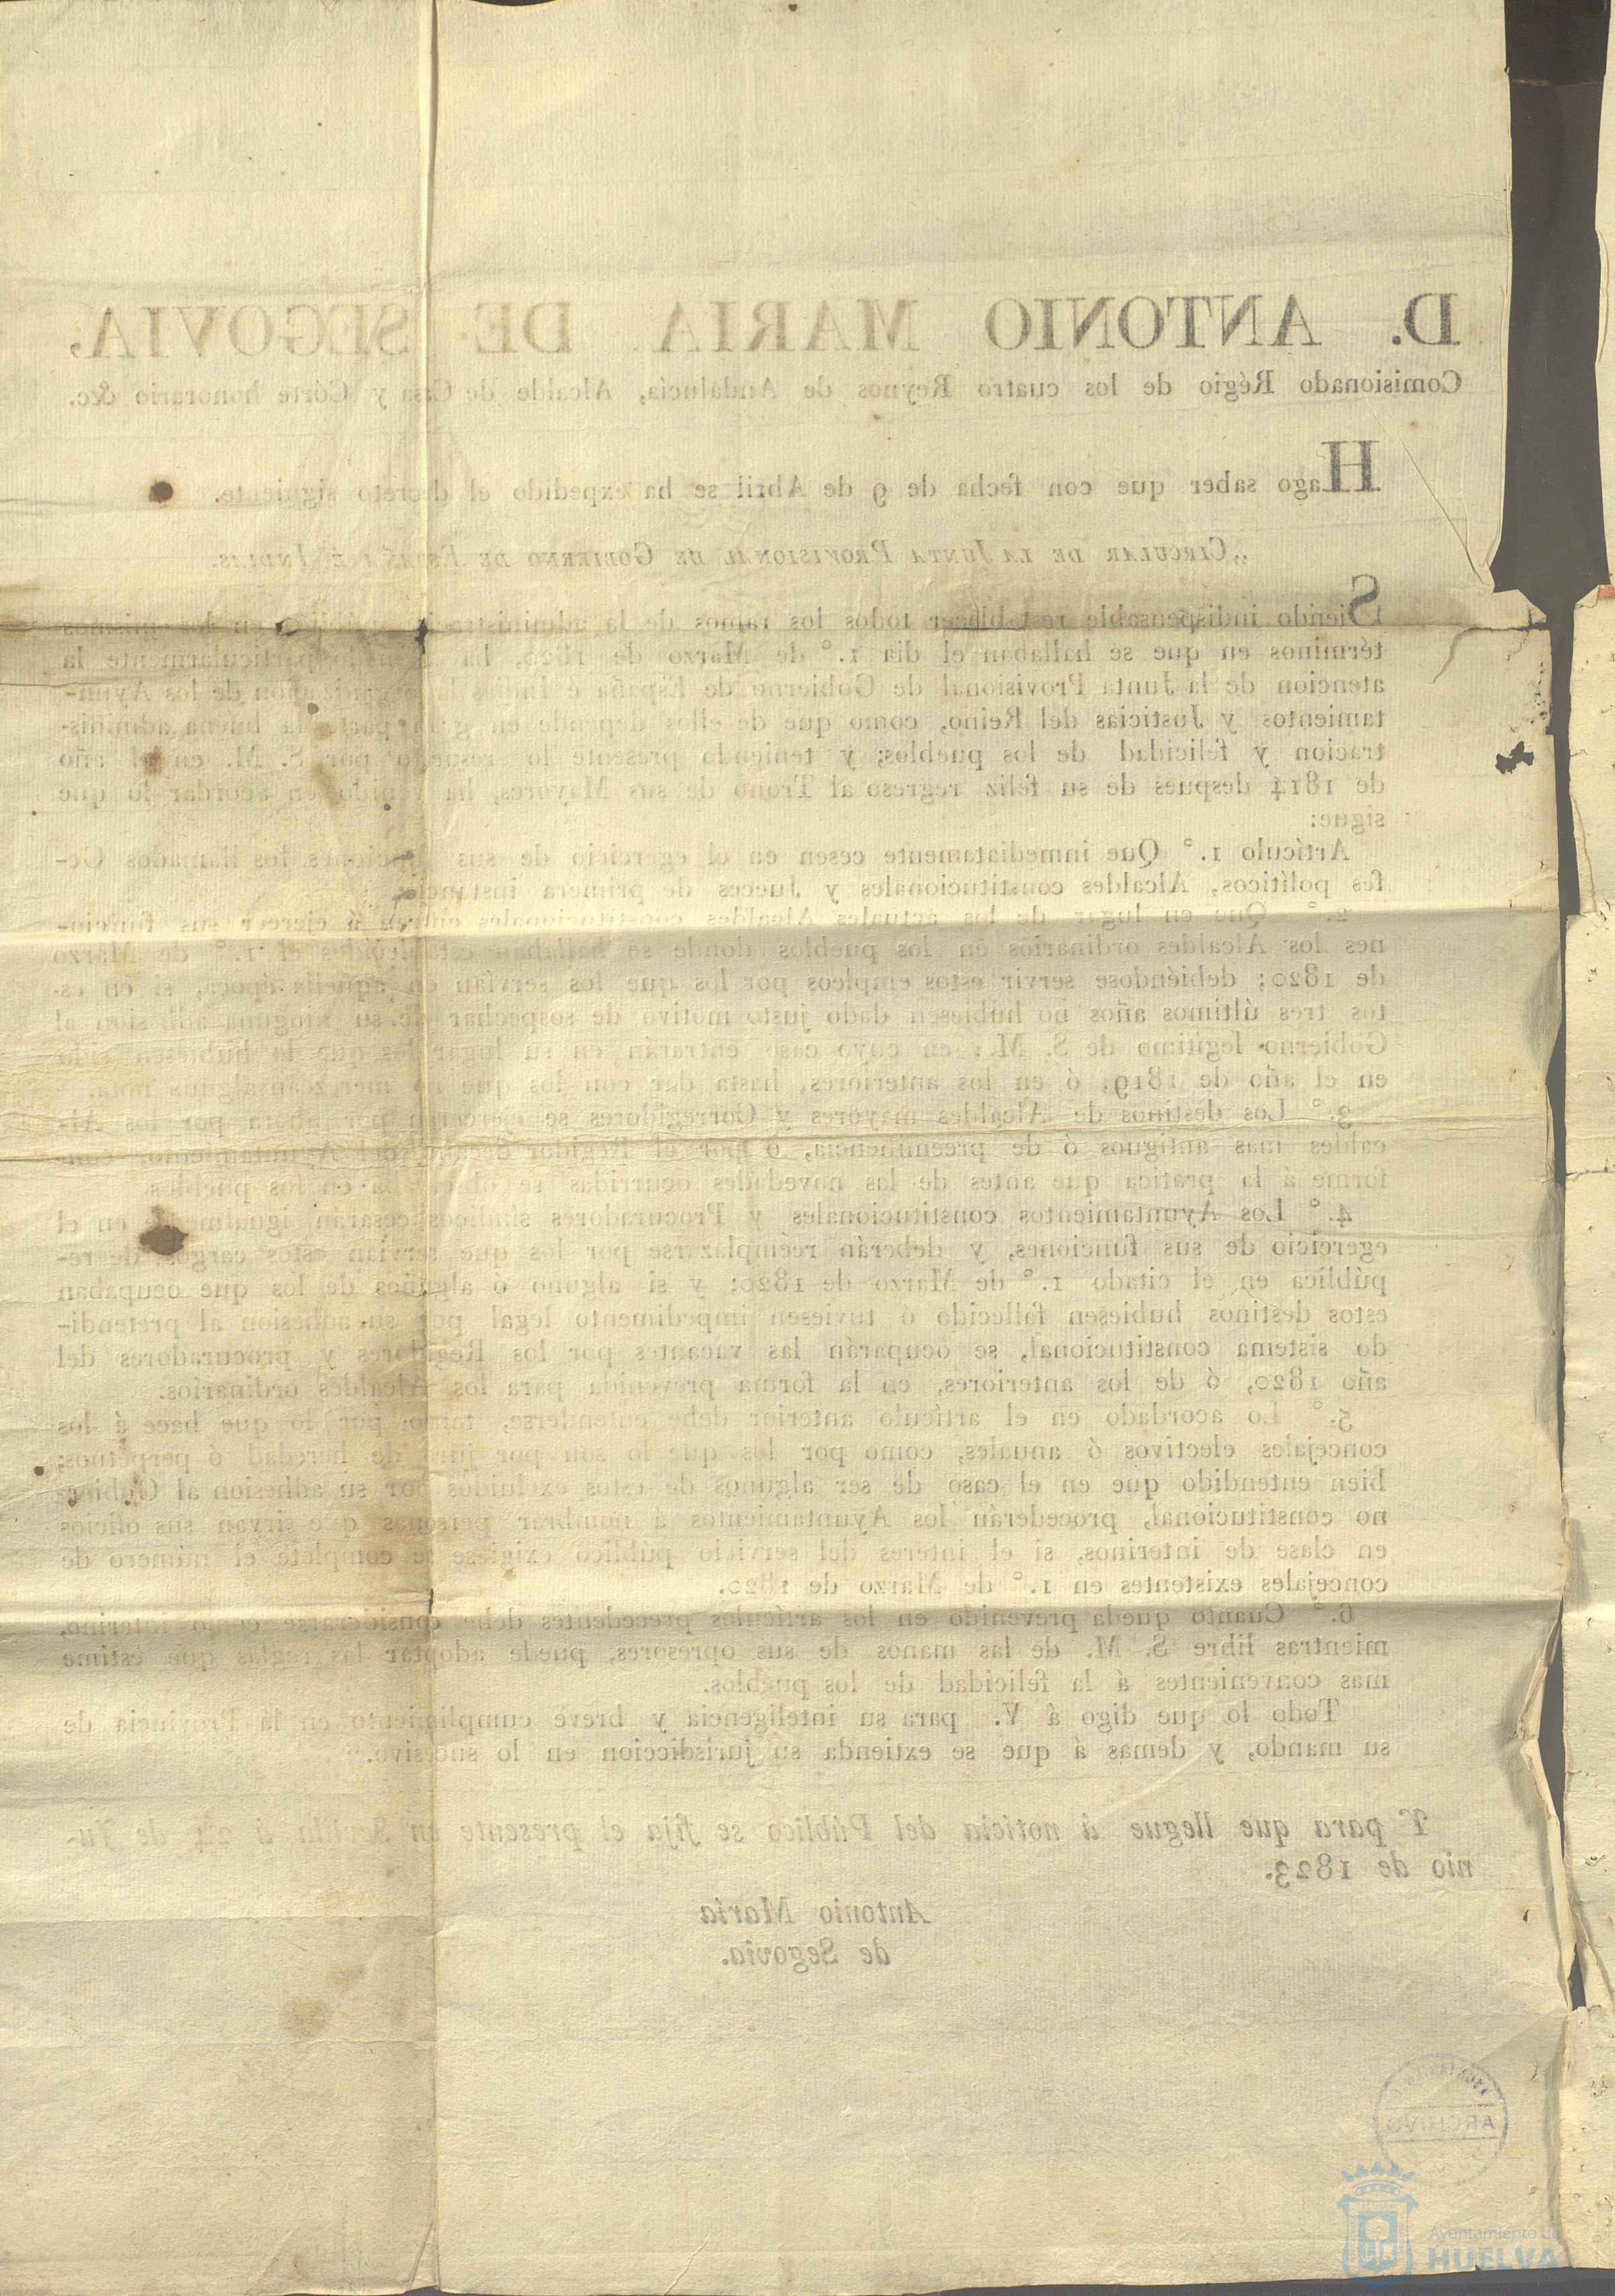 D. ANTONIO MARIA DE SEGOVIA,
Comisionado Régio de los cuatro Reynos de Andalucía, Alcalde de Casa y Córte honorario &c.
Hago saber que con fecha de 9 de Abril se ha expedido el decreto siguiente.
„CIRCULAR DE LA JUNTA PROVISIONAL DE GOBIERNO DE ESPAÑA É INDIAS.
Siendo indispensable restablecer todos los ramos de la administracion pública en los mismos
términos en que se hallaban el dia 1.° de Marzo de 1820, ha particularmente la
atencion de la Junta Provisional de Gobierno de España é Indias la organizacion de los Ayun-
tamientos y Justicias del Reino, como que de ellos depende en gran parte la buena adminis-
tracion y felicidad de los pueblos; y teniendo presente lo resuelto por S. M. en el año
de 1814 despues de su feliz regreso al Trono de sus Mayores, ha venido en acordar lo que
sigue:
Artículo 1.° Que inmediatamente cesen en el egercicio de sus funciones los llamados Ge-
fes políticos, Alcaldes constitucionales y Jueces de primera instancia.
2.° Que en lugar de los actuales Alcaldes constitucionales entren á ejercer sus funcio-
nes los Alcaldes ordinarios en los pueblos donde se hallaban establecidos el 1.° de Marzo
de 1820; debiéndose servir estos empleos por los que los servian en aquella época, si en es-
tos tres últimos años no hubiesen dado justo motivo de sospechar de su ninguna adhesion al
Gobierno legítimo de S. M.; en cuyo caso entrarán en su lugar los que lo hubiesen sido
en el año de 1819, ó en los anteriores, hasta dar con los que no merezcan alguna nota.
3.° Los destinos de Alcaldes mayores y Corregidores se ejercerán por ahora por los Al-
caldes mas antiguos ó de preeminencia, ó por el Regidor decano del Ayuntamiento, con-
forme á la pratica que antes de las novedades ocurridas se observaba en los pueblos.
4.° Los Ayuntamientos constitucionales y Procuradores síndicos cesarán igualmente en el
egercicio de sus funciones, y deberán reemplazarse por los que servian estos cargos de re-
pública en el citado 1.° de Marzo de 1820; y si alguno ó algunos de los que ocupaban
estos destinos hubiesen fallecido ó tuviesen impedimento legal por su adhesion al pretendi-
do sistema constitucional, se ocuparán las vacantes por los Regidores y procuradores del
año 1820, ó de los anteriores, en la forma prevenida para los Alcaldes ordinarios.
5.° Lo acordado en el artículo anterior debe entenderse, tanto por lo que hace á los
concejales electivos ó anuales, como por los que lo son por juro de heredad ó perpétuos;
bien entendido que en el caso de ser algunos de estos excluidos por su adhesion al Gobier-
no constitucional, procederán los Ayuntamientos á nombrar personas que sirvan sus oficios
en clase de interinos, si el interes del servicio público exigiese se complete el número de
concejales existentes en 1.° de Marzo de 1820.
6.° Cuanto queda prevenido en los artículos precedentes debe considerarse como interino,
mientras libre S. M. de las manos de sus opresores, puede adoptar las reglas que estime
mas convenientes á la felicidad de los pueblos.
Todo lo que digo á V. para su inteligencia y breve cumplimiento en la Provincia de
su mando, y demas á que se extienda su jurisdiccion en lo sucesivo."
Y para que llegue á noticia del Público se fija el presente en Sevilla á 24 de Ju-
nio de 1823.
Antonio Maria
de Segovia.
ARCHIVO
Ayuntamiento de
HUELVA